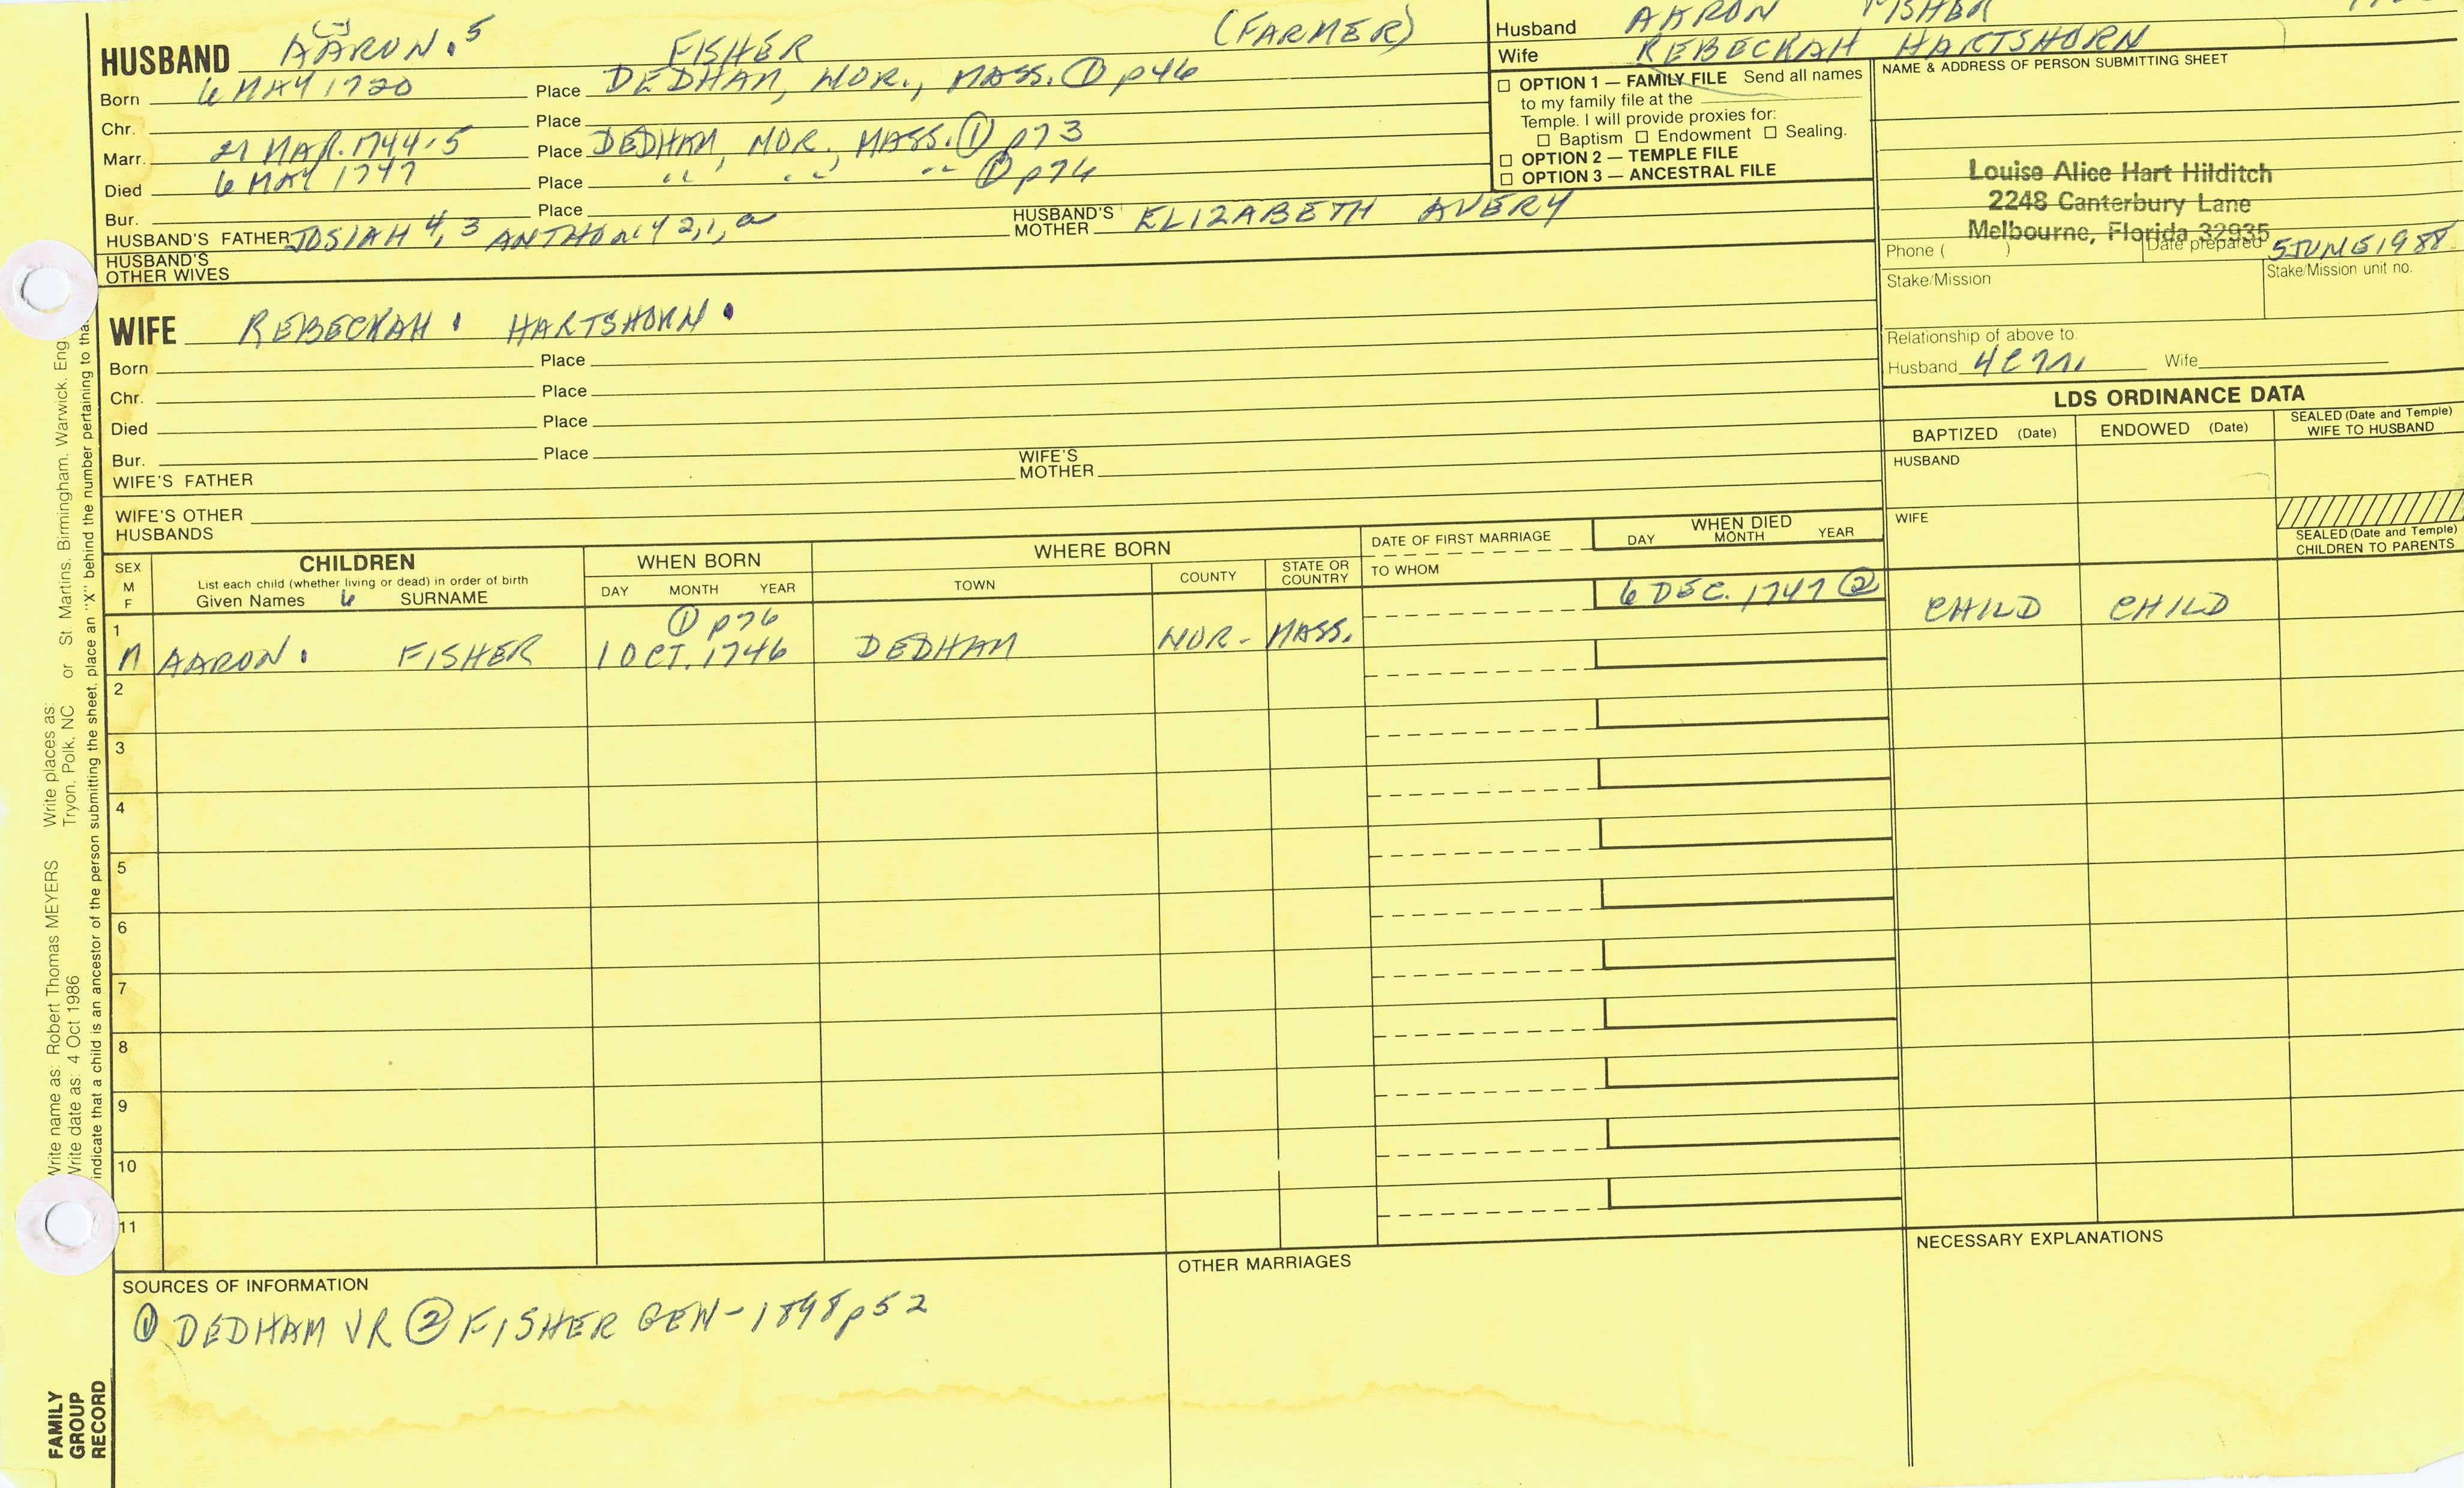 HUSBAND AARON.5 FISHER (FARMER)
Born 6 MAY 1720 Place DEDHAM, NOR., MASS. ① p46
Chr. Place
Marr. 21 MAR. 1744-5 Place DEDHAM, NOR. MASS. ① p73
Died 6 MAY 1747 Place " " " ① p74
Bur. Place
HUSBAND'S FATHER JOSIAH 4, 3 ANTHONY 2,1,a HUSBAND'S MOTHER ELIZABETH AVERY
HUSBAND'S OTHER WIVES
Husband AARON FISHER
Wife REBECKAH HARTSHORN
☐ OPTION 1 — FAMILY FILE Send all names
to my family file at the
Temple. I will provide proxies for:
☐ Baptism ☐ Endowment ☐ Sealing.
☐ OPTION 2 — TEMPLE FILE
☐ OPTION 3 — ANCESTRAL FILE
NAME & ADDRESS OF PERSON SUBMITTING SHEET
Louise Alice Hart Hilditch
2248 Canterbury Lane
Melbourne, Florida 32935
Phone ( ) Date prepared 5 JUNE 1988
Stake/Mission Stake/Mission unit no.
Relationship of above to
Husband Wife
WIFE REBECKAH. HARTSHORN.
Born Place
Chr. Place
Died Place
Bur. Place
WIFE'S FATHER WIFE'S MOTHER
WIFE'S OTHER HUSBANDS
LDS ORDINANCE DATA
BAPTIZED (Date) ENDOWED (Date) SEALED (Date and Temple) WIFE TO HUSBAND
HUSBAND
WIFE
SEALED (Date and Temple) CHILDREN TO PARENTS
SEX M F
CHILDREN
List each child (whether living or dead) in order of birth
Given Names 6 SURNAME
WHEN BORN
DAY MONTH YEAR
WHERE BORN
TOWN COUNTY STATE OR COUNTRY
DATE OF FIRST MARRIAGE
TO WHOM
WHEN DIED
DAY MONTH YEAR
1 ① p76 6 DEC. 1747 ② CHILD CHILD
M AARON. FISHER 1 OCT. 1746 DEDHAM NOR- MASS.
2
3
4
5
6
7
8
9
10
11
SOURCES OF INFORMATION
① DEDHAM VR ② FISHER GEN-1898 p52
OTHER MARRIAGES
NECESSARY EXPLANATIONS
FAMILY
GROUP
RECORD
Write name as: Robert Thomas MEYERS Write places as:
Write date as: 4 Oct 1986 Tryon, Polk, NC or St. Martins, Birmingham, Warwick, Eng.
indicate that a child is an ancestor of the person submitting the sheet, place an "X" behind the number pertaining to tha